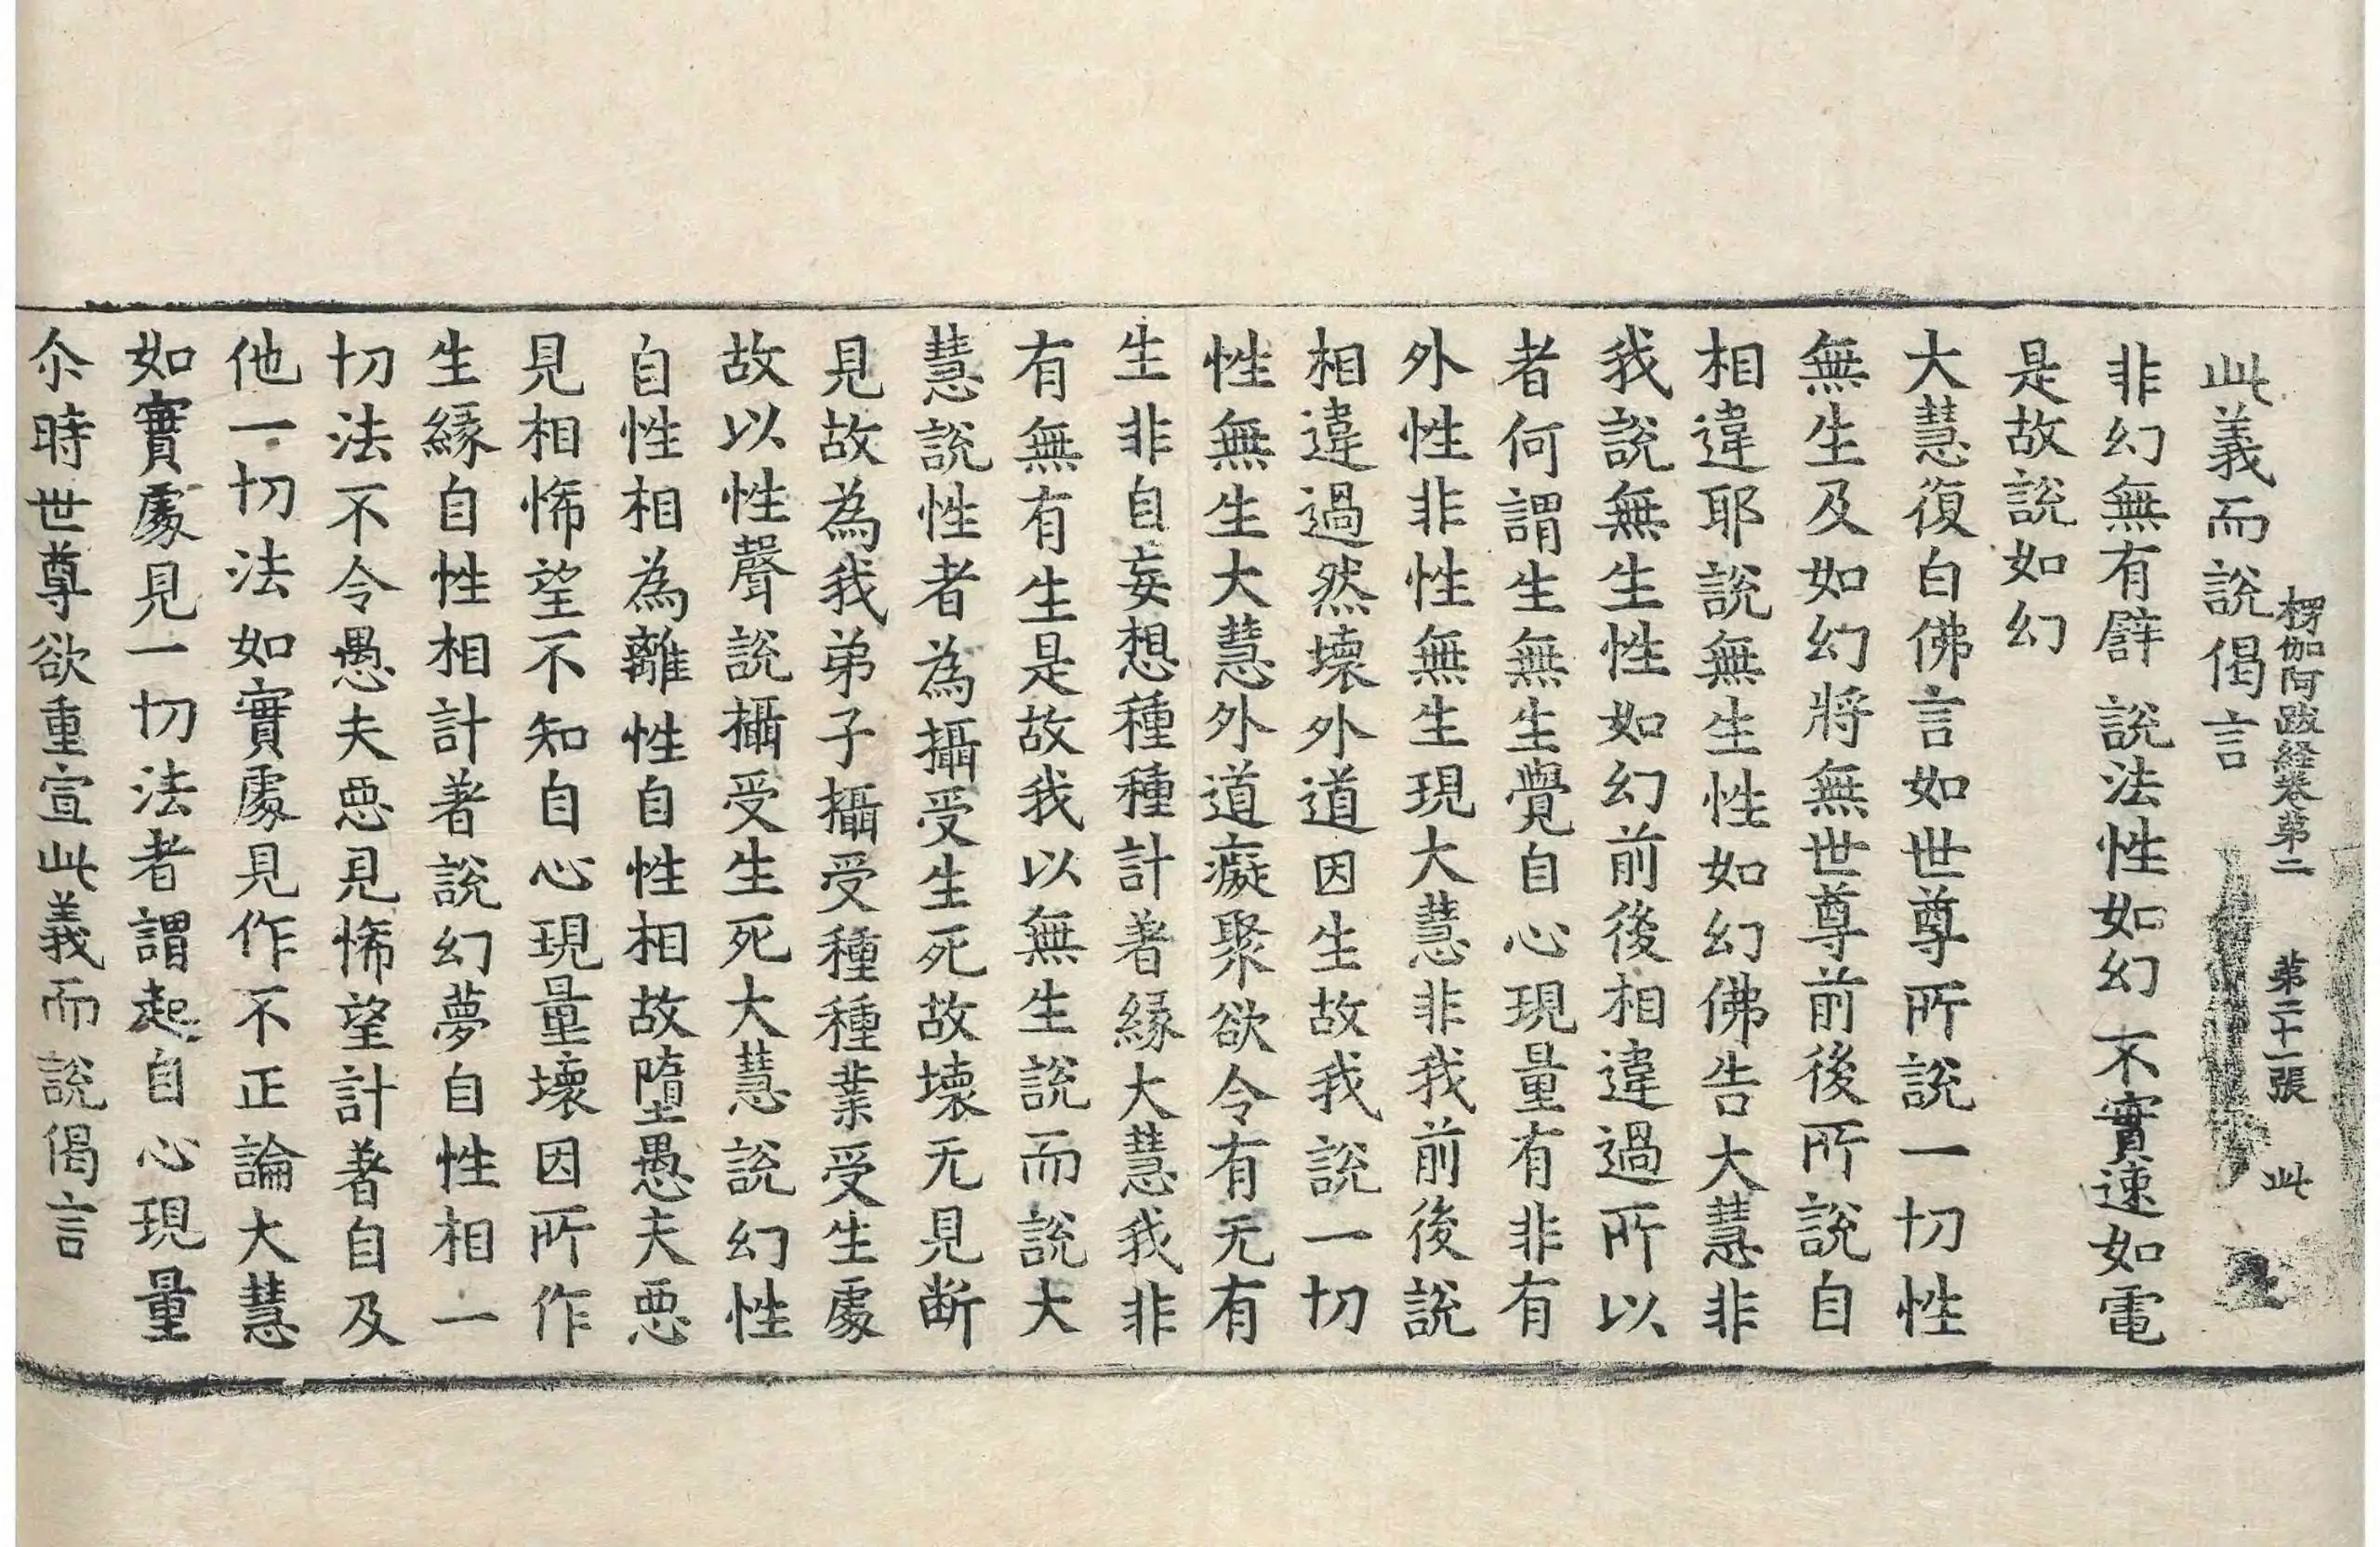 楞伽阿跋経卷第二 第二十一張 此
此義而說偈言
非幻無有辟 說法性如幻 不實速如電
是故說如幻
大慧復白佛言如世尊所說一切性
無生及如幻將無世尊前後所說自
相違耶說無生性如幻佛告大慧非
我說無生性如幻前後相違過所以
者何謂生無生覺自心現量有非有
外性非性無生現大慧非我前後說
相違過然壊外道因生故我說一切
性無生大慧外道癡聚欲令有无有
生非自妄想種種計著緣大慧我非
有無有生是故我以無生說而說大
慧說性者為攝受生死故壊无見断
見故為我弟子攝受種種業受生處
故以性聲說攝受生死大慧說幻性
自性相為離性自性相故墮愚夫惡
見相悕望不知自心現量壊因所作
生緣自性相計著說幻夢自性相一
切法不令愚夫惡見悕望計著自及
他一切法如實處見作不正論大慧
如實處見一切法者謂起自心現量
尒時世尊欲重宣此義而說偈言